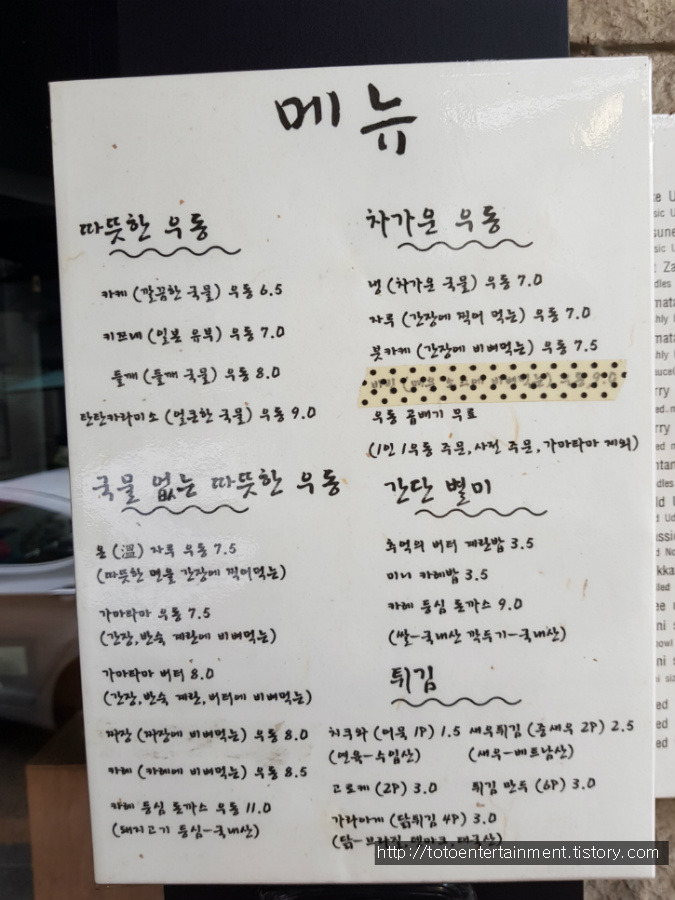 메뉴
따뜻한 우동
카케 (깔끔한 국물) 우동 6.5
키쯔네 (일본 유부) 우동 7.0
들깨 (들깨 국물) 우동 8.0
탄탄카라미소 (얼큰한 국물) 우동 9.0
국물 없는 따뜻한 우동
온 (溫) 자루 우동 7.5
(따뜻한 면을 간장에 찍어먹는)
가마타마 우동 7.5
(간장, 반숙 계란에 비벼먹는)
가마타마 버터 8.0
(간장, 반숙 계란, 버터에 비벼먹는)
짜장 (짜장에 비벼먹는) 우동 8.0
카레 (카레에 비벼먹는) 우동 8.5
카레 등심 돈까스 우동 11.0
(돼지고기 등심-국내산)
차가운 우동
냉 (차가운 국물) 우동 7.0
자루 (간장에 찍어 먹는) 우동 7.0
붓카케 (간장에 비벼먹는) 우동 7.5
우동 곱배기 무료
(1인 1우동 주문, 사전 주문, 가마타마 제외)
간단 별미
추억의 버터 계란밥 3.5
미니 카레밥 3.5
카레 등심 돈까스 9.0
(쌀-국내산 깍두기-국내산)
튀김
치쿠와 (어묵 1P) 1.5 새우튀김 (중새우 2P) 2.5
(연육-수입산) (새우-베트남산)
고로케 (2P) 3.0 튀김 만두 (6P) 3.0
가라아게 (닭튀김 4P) 3.0
(닭-브라질, 덴마크, 태국산)
http://totoentertainment.tistory.com